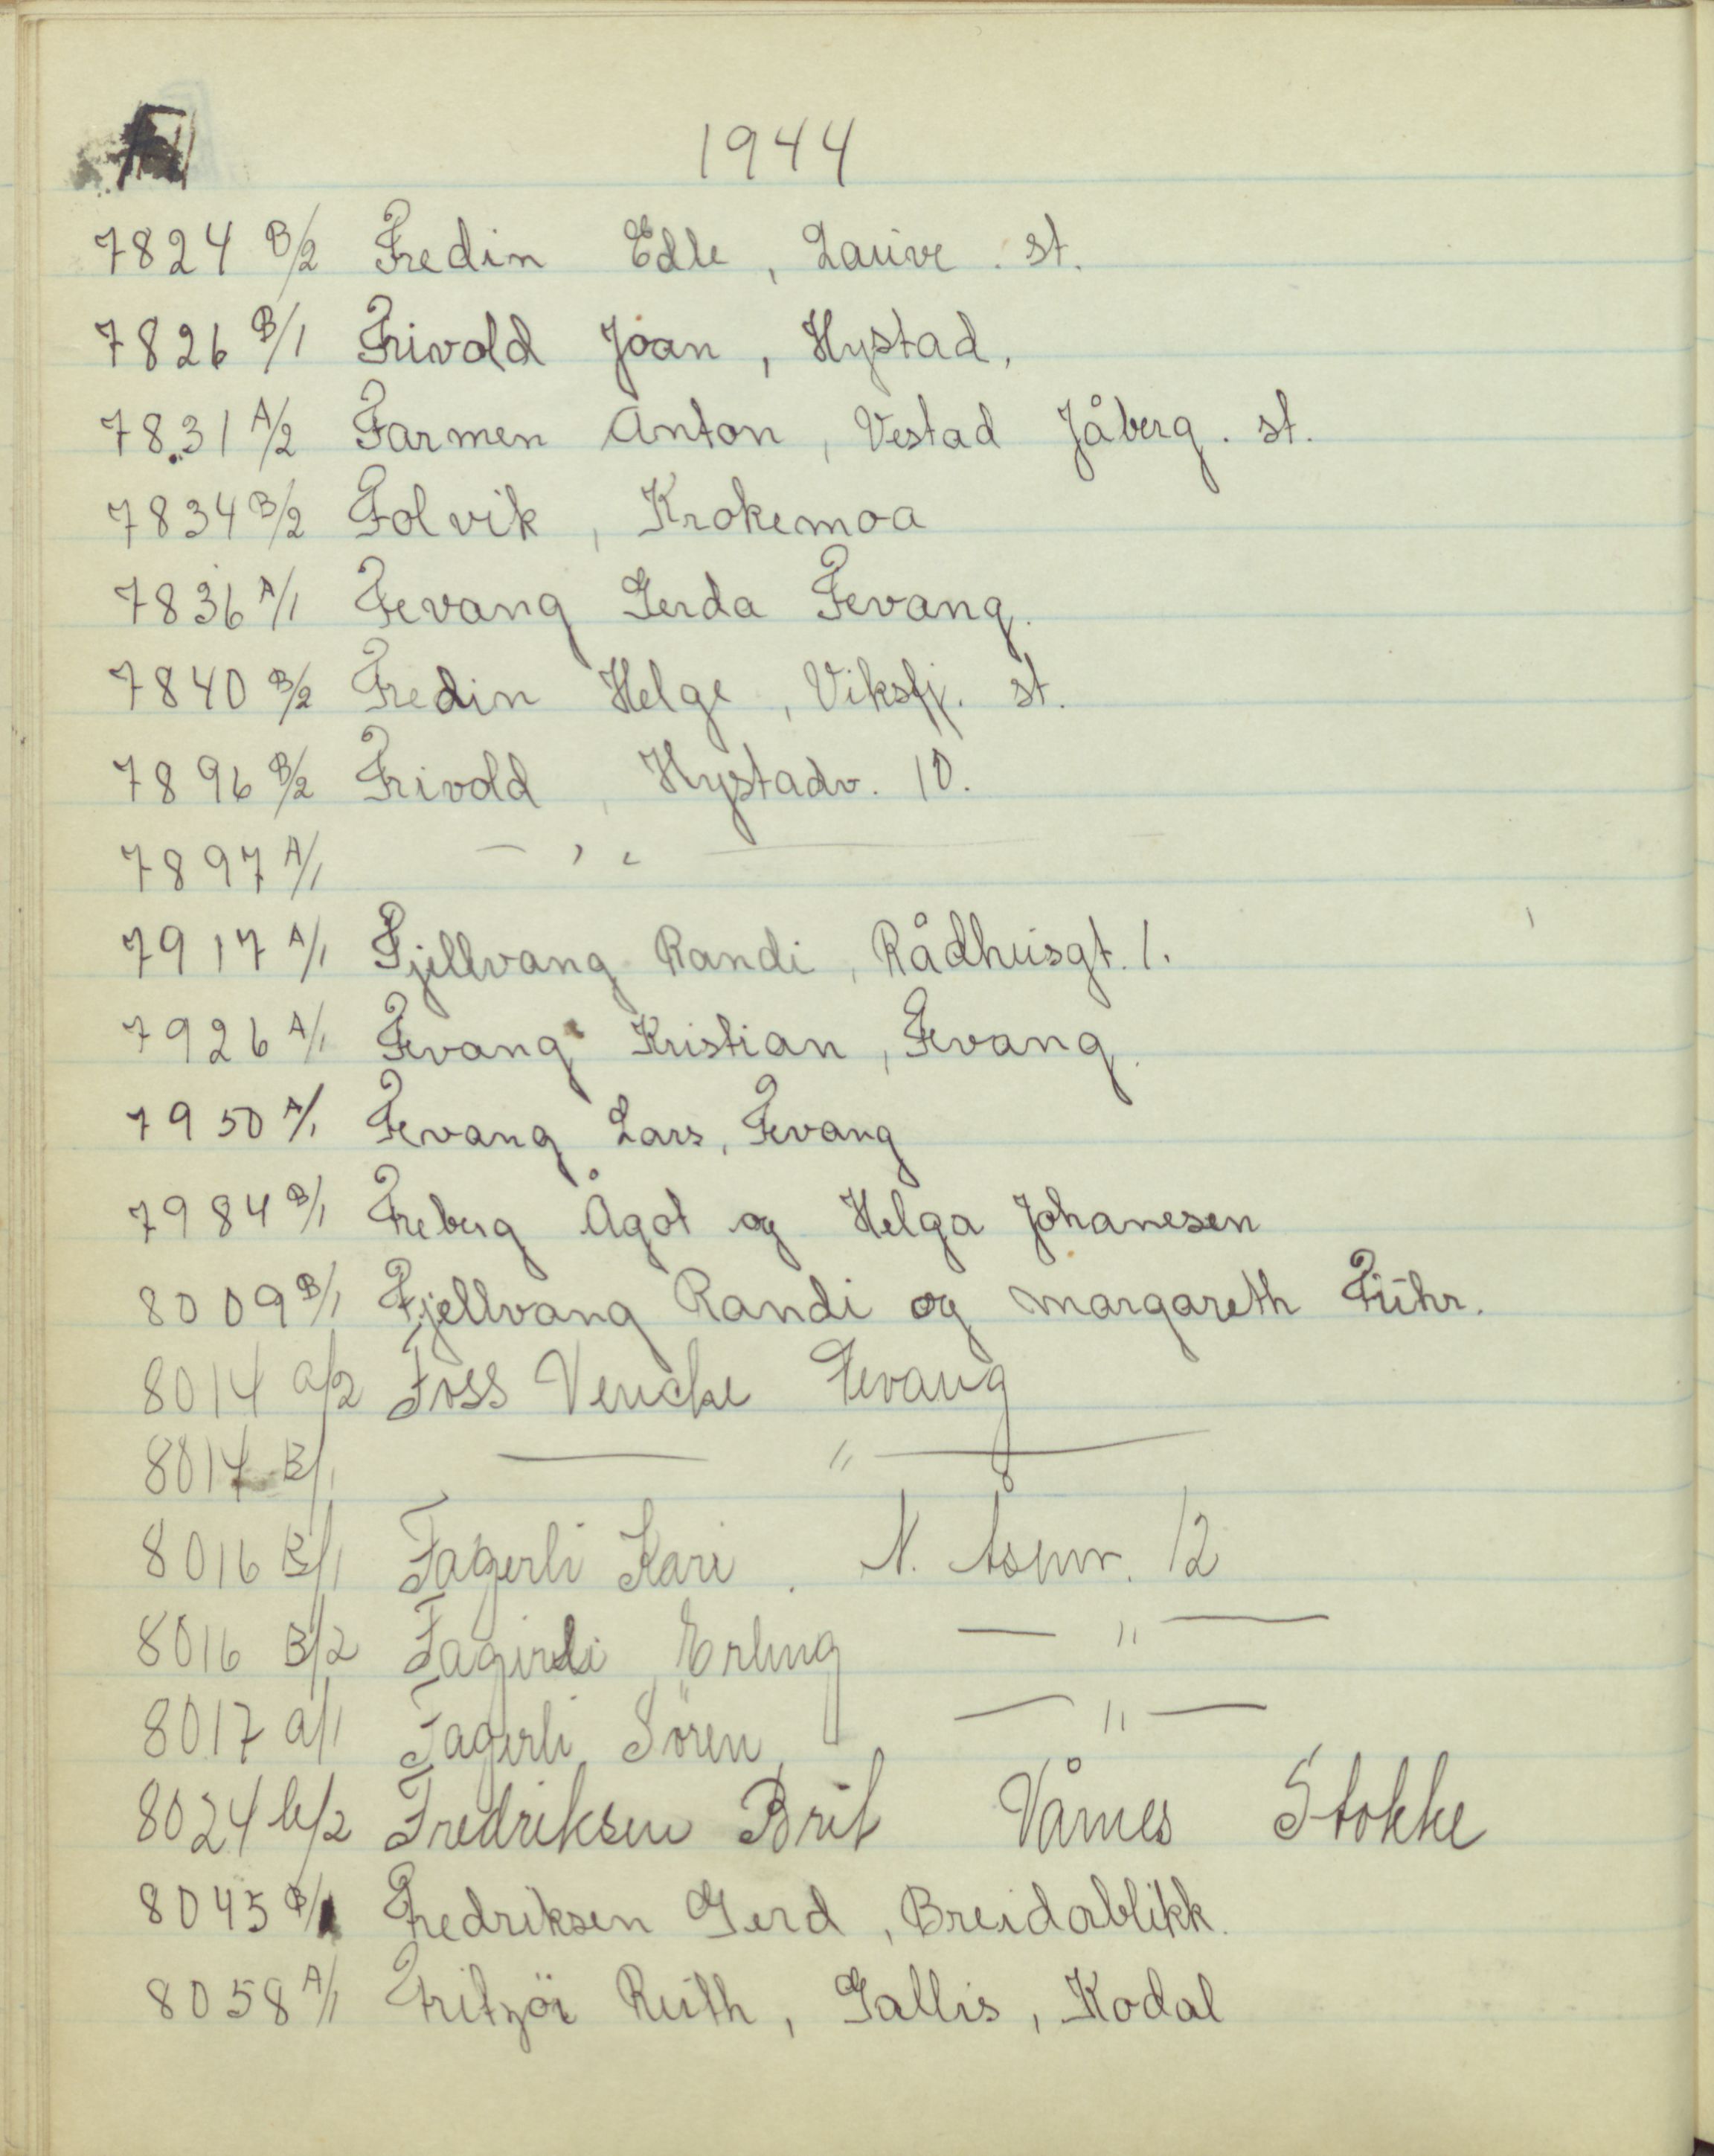 1944
7824 B/2 Fredin Edle, Lauve. st.
7826 B/1 Frivold Joan, Hystad.
7831 A/2 Farmen Anton, Vestad Jåberg. st.
7834 B/2 Folvik, Krokemoa
7836 A/1 Fevang Gerda Fevang.
7840 B/2 Fredin Helge, Viksfj. st.
7896 B/2 Frivold, Hystadv. 10.
7897 A/1 — " —
7917 A/1 Fjellvang Randi, Rådhusgt. 1.
7926 A/1 Fevang Kristian, Fevang.
7950 A/1 Fevang Lars, Fevang
7984 B/1 Freberg Ågot og Helga Johanesen
8009 B/1 Fjellvang Randi og Margareth Führ.
8014 a/2 Foss Vencke Fevang
8014 B/1 — " —
8016 B/1 Fagerli Kari. N. 12
8016 B/2 Fagerli, Erling — " —
8017 a/1 Fagerli Sören — " —
8024 b/2 Fredriksen Brit Vårnes Stokke
8045 B/1 Fredriksen Gerd, Breidablikk.
8058 A/1 Fritzöe Ruth, Gallis, Kodal